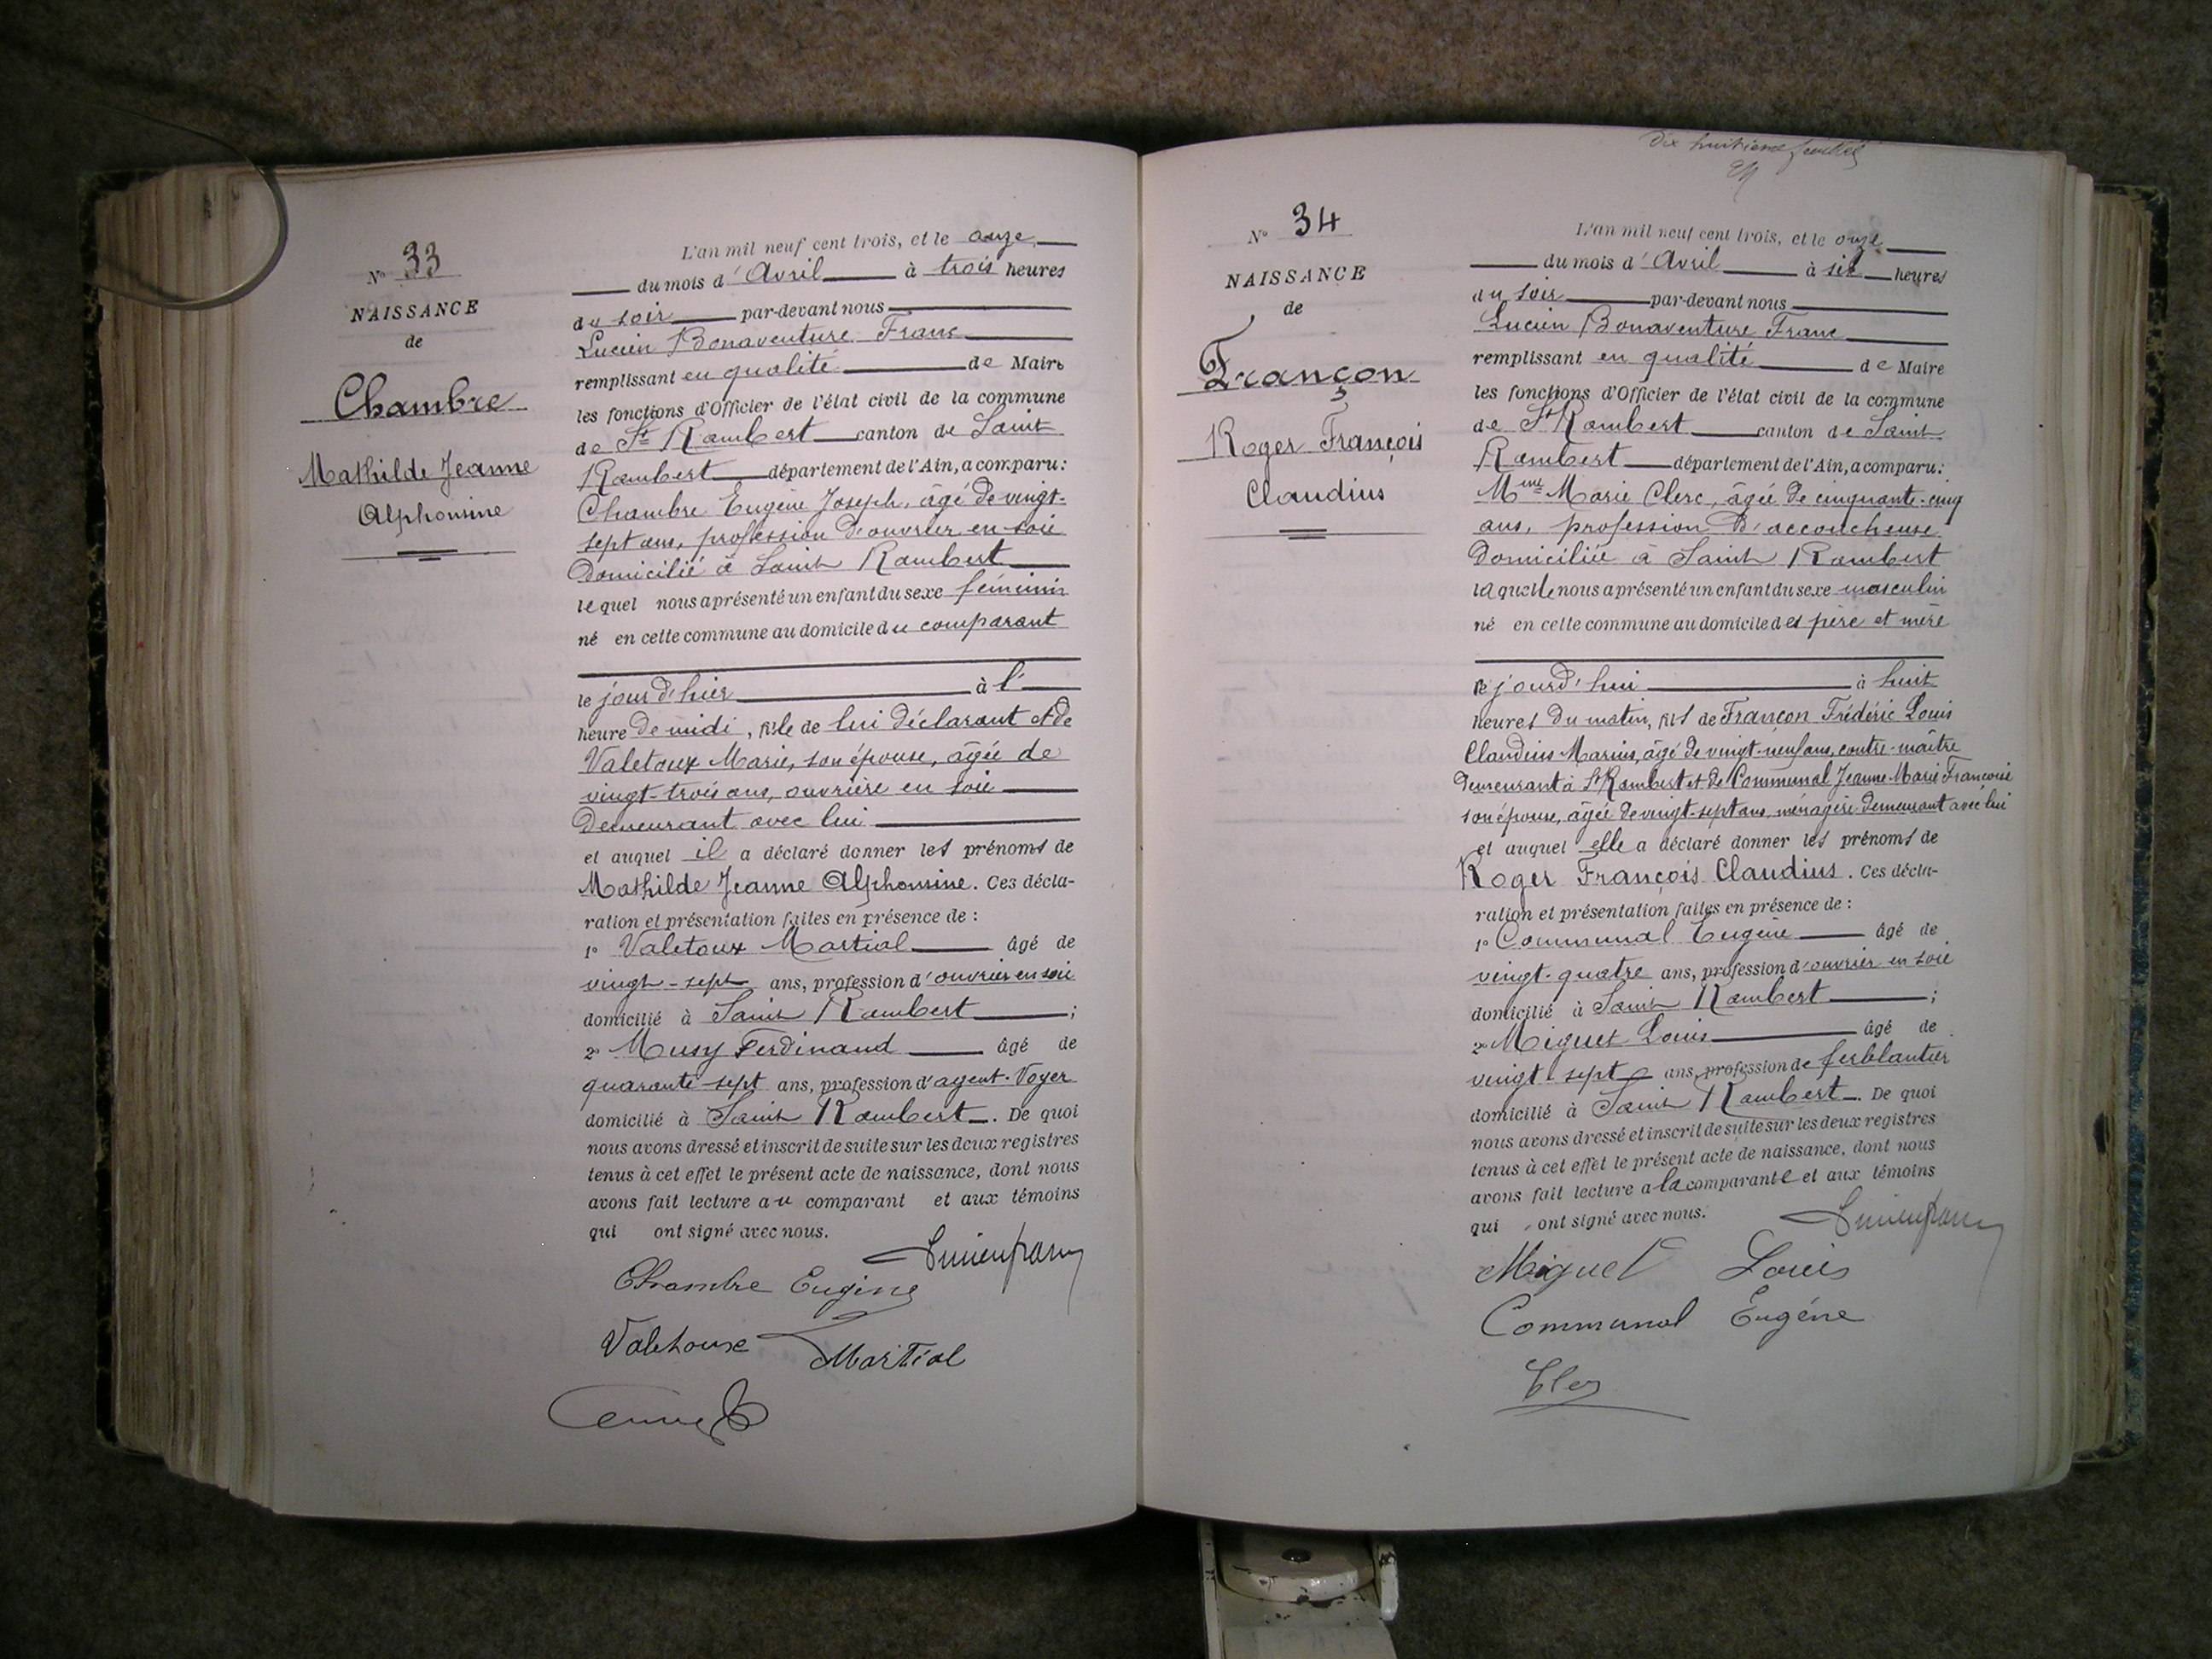 N° 33
NAISSANCE
de
Chambre
Mathilde Jeanne
Alphonsine
L'an mil neuf cent trois, et le onze
du mois d'Avril à trois heures
du soir par-devant nous
Lucien Bonaventure Franc
remplissant en qualité de Maire
les fonctions d'Officier de l'état civil de la commune
de St Rambert canton de Saint
Rambert département de l'Ain, a comparu:
Chambre Eugène Joseph, âgé de vingt-
sept ans, profession d'ouvrier en soie
Domicilié à Saint Rambert
lequel nous a présenté un enfant du sexe féminin
né en cette commune au domicile du comparant
le jour d'hier à l'
heure de midi, fille de lui déclarant et de
Valetoux Marie, son épouse, âgée de
vingt-trois ans, ouvrière en soie
Demeurant avec lui
et auquel il a déclaré donner les prénoms de
Mathilde Jeanne Alphonsine. Ces décla-
ration et présentation faites en présence de :
1° Valetoux Martial âgé de
vingt-sept ans, profession d'ouvrier en soie
domicilié à Saint Rambert ;
2° Musy Ferdinand âgé de
quarante-sept ans, profession d'agent-Voyer
domicilié à Saint Rambert. De quoi
nous avons dressé et inscrit de suite sur les deux registres
tenus à cet effet le présent acte de naissance, dont nous
avons fait lecture au comparant et aux témoins
qui ont signé avec nous.
Lucien Franc
Chambre Eugène
Valetoux Martial
Dix huitième feuillet
N° 34
NAISSANCE
de
Françon
Roger François
Claudius
L'an mil neuf cent trois, et le onze
du mois d'Avril à six heures
du soir par-devant nous
Lucien Bonaventure Franc
remplissant en qualité de Maire
les fonctions d'Officier de l'état civil de la commune
de St Rambert canton de Saint
Rambert département de l'Ain, a comparu:
Mme Marie Clerc, âgée de cinquante-cinq
ans, profession d'accoucheuse
Domiciliée à Saint Rambert
laquelle nous a présenté un enfant du sexe masculin
né en cette commune au domicile des père et mère
le jourd'hui à huit
heures du matin, fils de Françon Frédéric Louis
Claudius Marius, âgé de vingt-neuf ans, contre-maître
Demeurant à St Rambert et de Communal Jeanne Marie Françoise
son épouse, âgée de vingt-sept ans, ménagère demeurant avec lui
et auquel elle a déclaré donner les prénoms de
Roger François Claudius. Ces décla-
ration et présentation faites en présence de :
1° Communal Eugène âgé de
vingt-quatre ans, profession d'ouvrier en soie
domicilié à Saint Rambert ;
2° Miguet Louis âgé de
vingt-sept ans, profession de ferblantier
domicilié à Saint Rambert. De quoi
nous avons dressé et inscrit de suite sur les deux registres
tenus à cet effet le présent acte de naissance, dont nous
avons fait lecture a la comparante et aux témoins
qui ont signé avec nous.
Lucien Franc
Miguet Louis
Communal Eugène